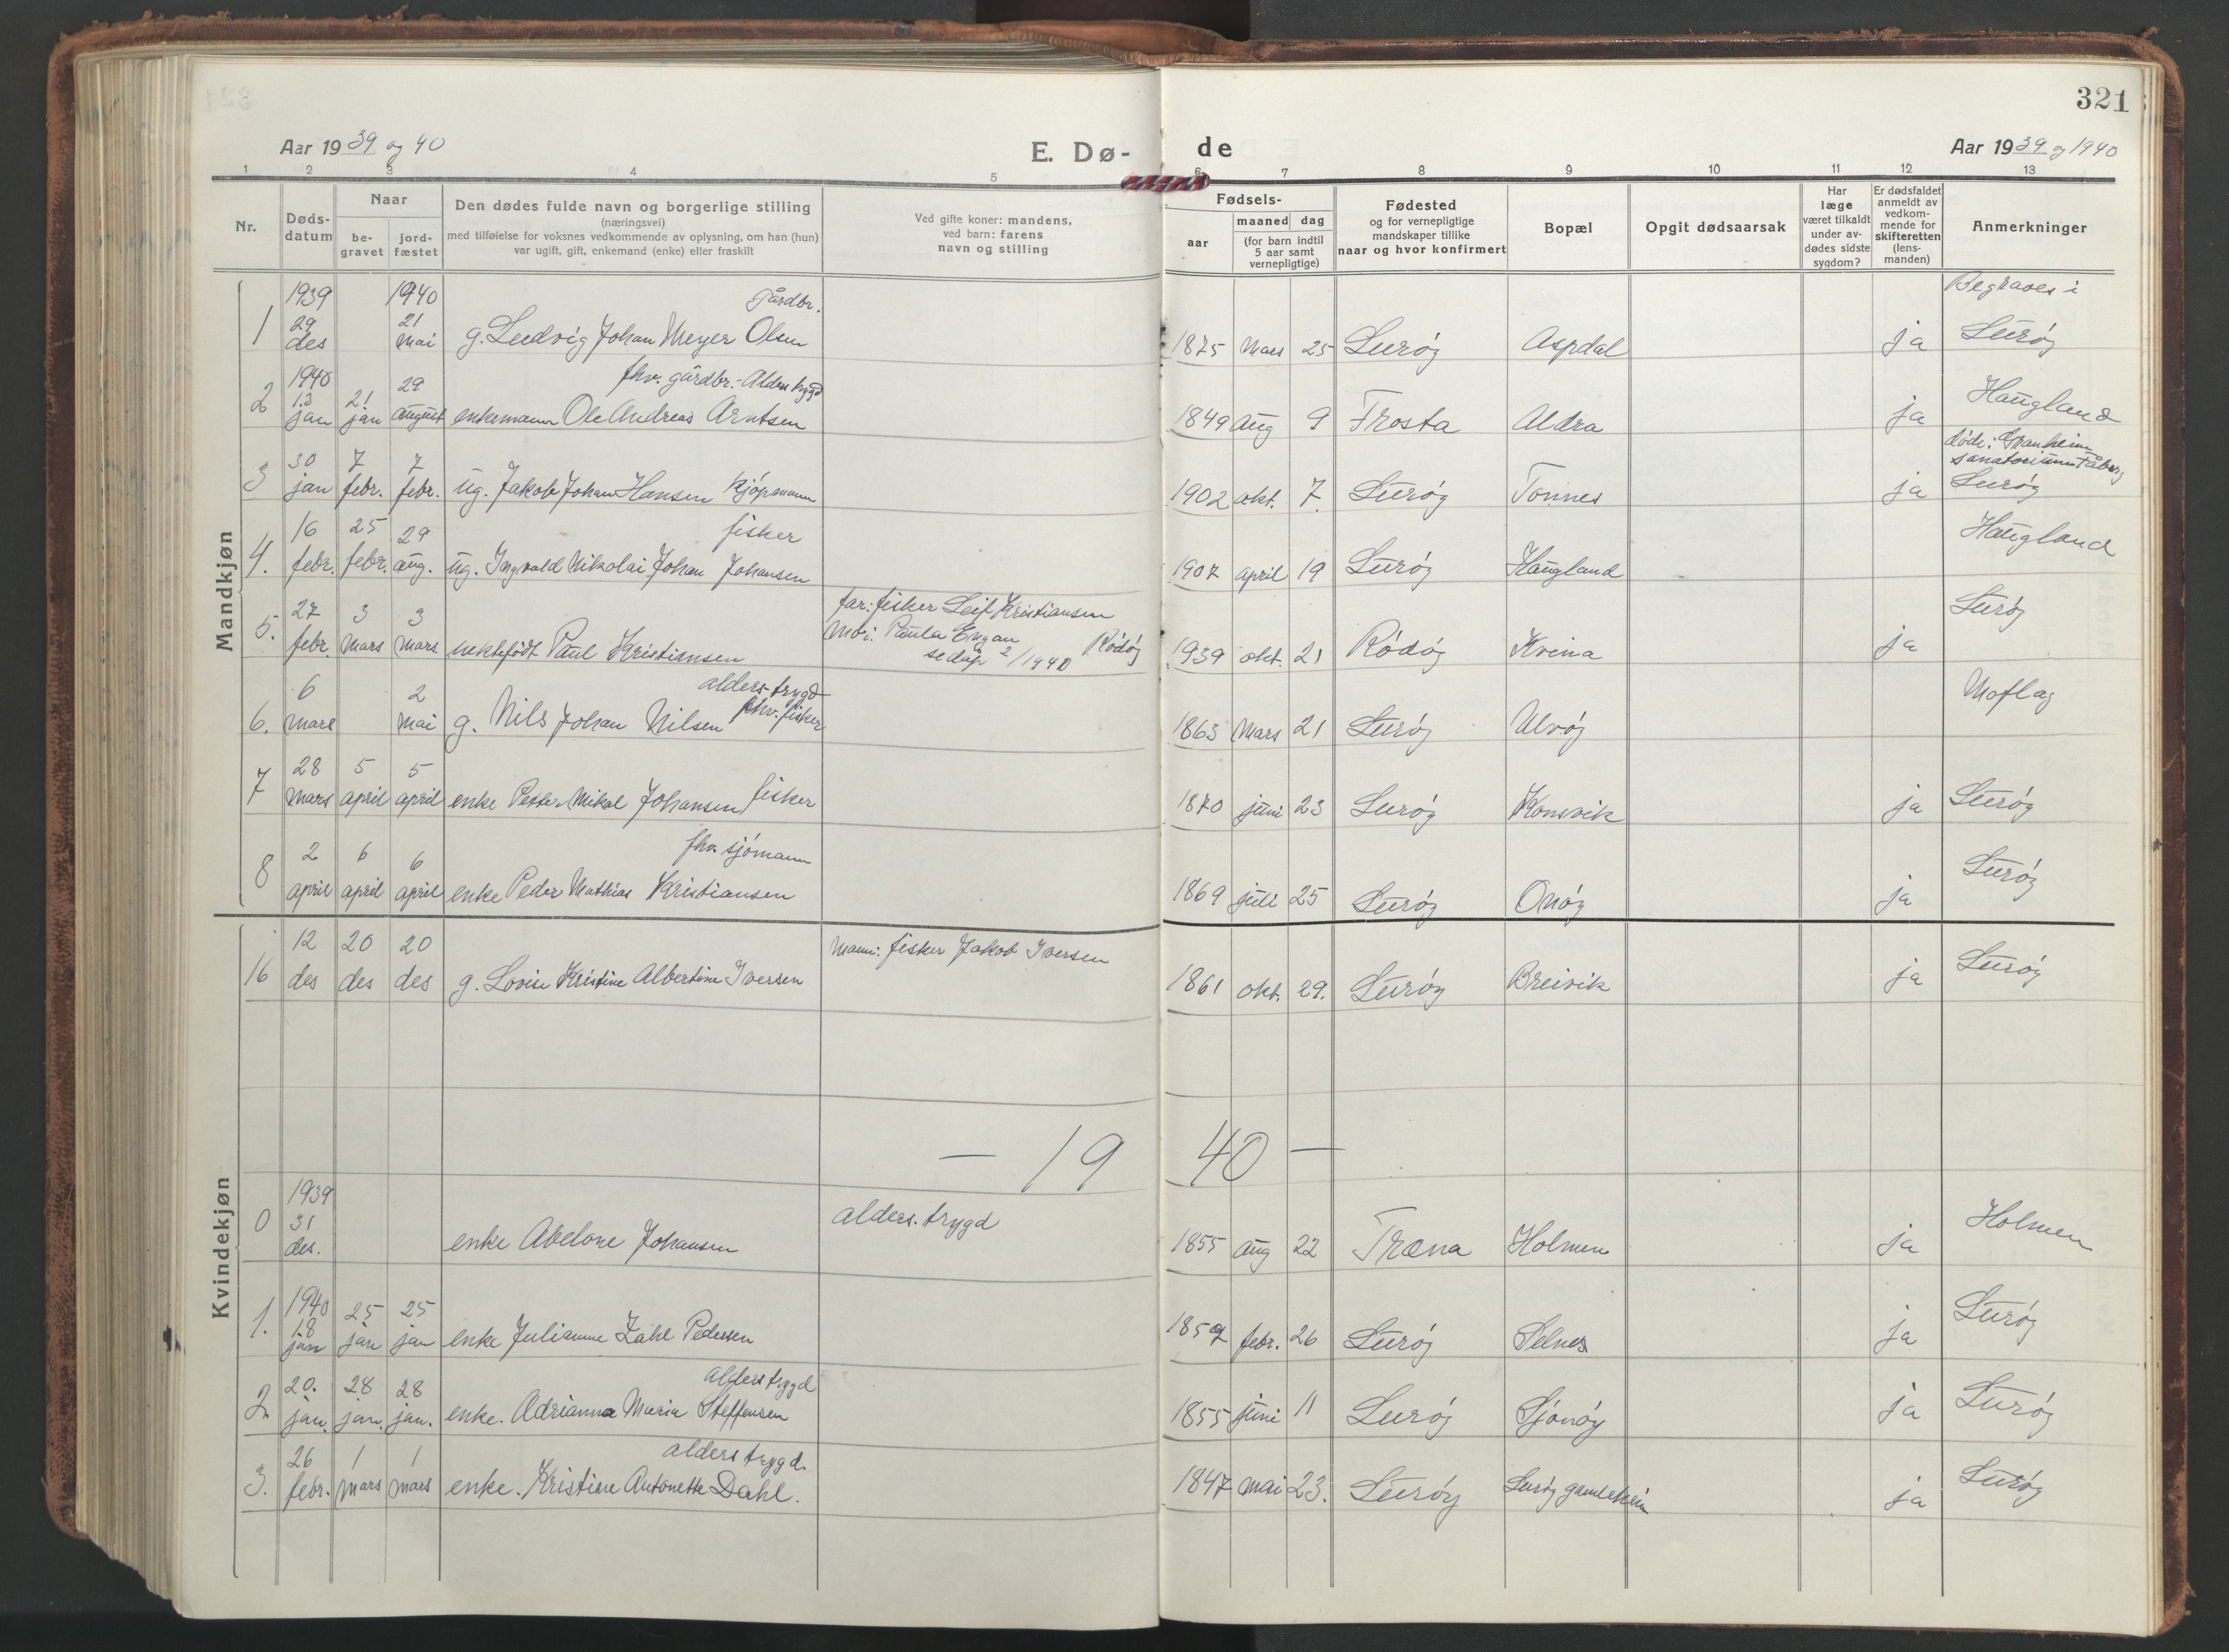 321
Aar 1939 og 40
E. Dø-
de
Aar 1939 og 1940
1 2 3 4 5 6 7 8 9 10 11 12 13
Nr.
Døds-
datum
Naar
be-
gravet
jord-
fæstet
Den dødes fulde navn og borgerlige stilling
(næringsvei)
med tilføielse for voksnes vedkommende av oplysning, om han (hun)
var ugift, gift, enkemand (enke) eller fraskilt
Ved gifte koner: mandens,
ved barn: farens
navn og stilling
Fødsels-
aar
maaned dag
(for barn indtil
5 aar samt
vernepligtige)
Fødested
og for vernepligtige
mandskaper tillike
naar og hvor konfirmert
Bopæl
Opgit dødsaarsak
Har
læge
været tilkaldt
under av-
dødes sidste
sygdom?
Er dødsfaldet
anmeldt av
vedkom-
mende for
skifteretten
(lens-
manden)
Anmerkninger
Mandkjøn
1939 1940 gårdbr. Begraves i
1 29 des 21 mai g. Ludvig Johan Meyer Olsen 1875 Mars 25 Lurøy Aspdal ja Lurøy
1940 fhv. gårdbr.- Alderstrygd
2 13 jan 21 jan 29 august enkemann Ole Andreas Arntsen 1849 aug 9 Frosta Aldra ja Haugland
døde: Granheim
sanatorium Fåberg
3 30 jan 7 febr. 7 febr. ug. Jakob Johan Hansen kjøpmann 1902 okt. 7. Lurøy Tonnes ja Lurøy
fisker
4. 16 febr. 25 febr. 29 aug. ug. Ingvald Nikolai Johan Johansen 1907 april 19 Lurøy Haugland Haugland
far: fisker Leif Kristiansen
Mor: Paula Engan Rødøy
5. 27 febr. 3 Mars 3 mars. uektefødt Paul Kristiansen se dåp 2/1940 1939 okt. 21 Rødøy Kvina ja Lurøy
alders trygd
fhv. fisker
6. 6 mars 2 mai g. Nils Johan Nilsen 1863 Mars 21 Lurøy Ulvøy Moflag
7 28 mars 5 april 5 april enke Petter Mikal Johansen fisker 1870 juni 23 Lurøy Konsvik ja Lurøy
fhv. sjømann
8 2 april 6 april 6 april enke Peder Mathias Kristiansen 1869 juli 25 Lurøy Onøy ja Lurøy
Kvindekjøn
16 12 des 20 des 20 des g. Lovise Kristine Albertine Iversen Mann: fisker Jakob Iversen 1861 okt. 29. Lurøy Breivik ja Lurøy
— 19 40 —
1939
0 31 des. enke Abelone Johansen alders. trygd 1855 aug 22 Træna Holmen ja Holmen
1940
1. 18 jan 25 jan 25 jan enke Julianne Zahl Pedersen 1859 febr. 26 Lurøy Selnes ja Lurøy
alderstrygd
2. 20. jan. 28 jan. 28 jan. enke. Adrianna Maria Steffensen 1855 juni 11 Lurøy Sjonøy ja Lurøy
alders trygd.
3. 26 febr. 1 mars 1 mars enke. Kristine Antonette Dahl. 1847 mai 23. Lurøy Lurøy gamleheim ja Lurøy